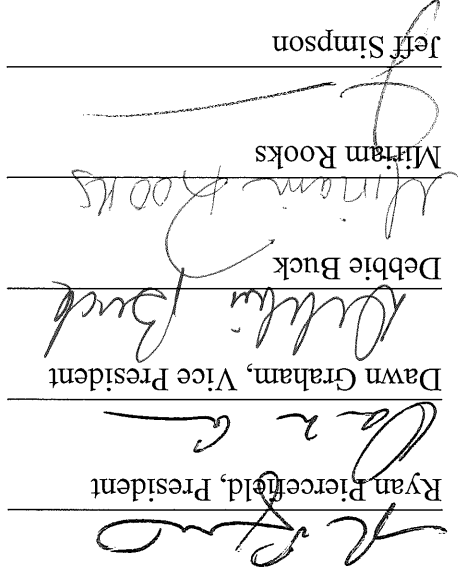 Ryan Piercefield, President
Dawn Graham, Vice President
Debbie Buck
Debbie Buck
Miriam Rooks
Miriam Rooks
Jeff Simpson